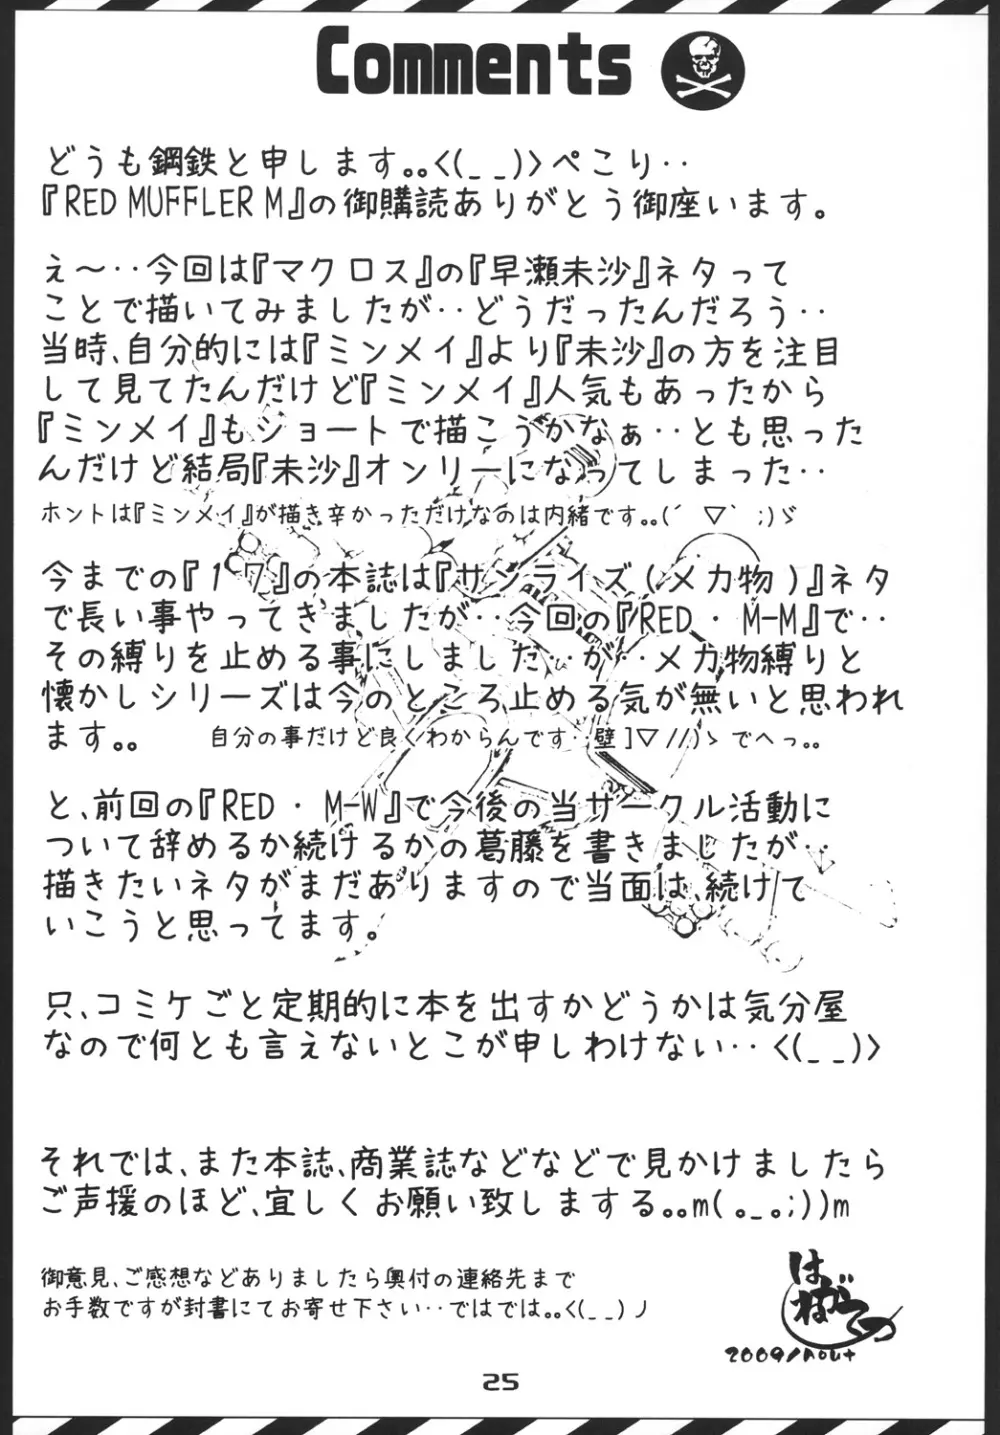 Comments
どうも鋼鉄と申します｡｡<(_ _)>ぺこり‥
『RED MUFFLER M』の御購読ありがとう御座います。
え〜‥今回は『マクロス』の『早瀬未沙』ネタって
ことで描いてみましたが‥どうだったんだろう‥
当時､自分的には『ミンメイ』より『未沙』の方を注目
して見てたんだけど『ミンメイ』人気もあったから
『ミンメイ』もショートで描こうかなぁ‥とも思った
んだけど結局『未沙』オンリーになってしまった‥
ホントは『ミンメイ』が描き辛かっただけなのは内緒です｡｡(´ ▽｀ ;)ゞ
今までの『17』の本誌は『サンライズ(メカ物)』ネタ
で長い事やってきましたが‥今回の『RED・M-M』で‥
その縛りを止める事にしました‥が‥メカ物縛りと
懐かしシリーズは今のところ止める気が無いと思われ
ます｡｡ 自分の事だけど良くわからんです‥壁]▽//)ゝでへっ｡｡
と､前回の『RED・M-W』で今後の当サークル活動に
ついて辞めるか続けるかの葛藤を書きましたが‥
描きたいネタがまだありますので当面は､続けて
いこうと思ってます。
只､コミケごと定期的に本を出すかどうかは気分屋
なので何とも言えないとこが申しわけない‥<(_ _)>
それでは､また本誌､商業誌などなどで見かけましたら
ご声援のほど､宜しくお願い致しまする｡｡m( ｡_｡;))m
御意見､ご感想などありましたら奥付の連絡先まで
お手数ですが封書にてお寄せ下さい‥ではでは｡｡<(_ _)ノ
はがねてつ
2009/AOUt
25